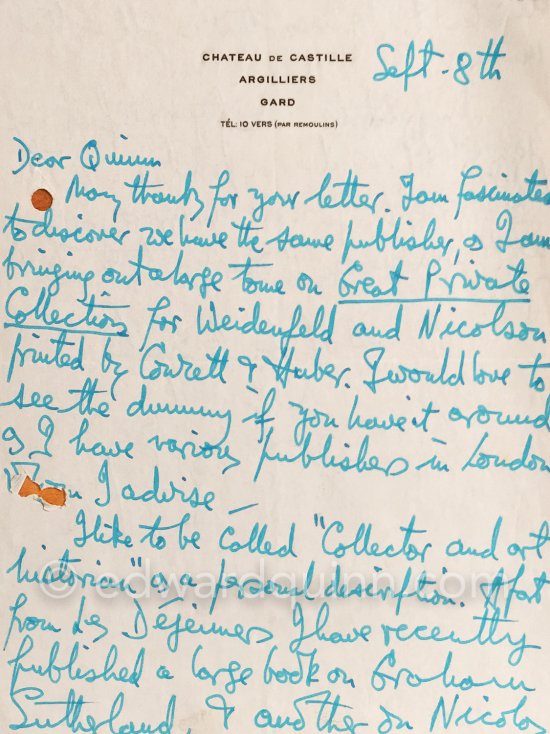 CHATEAU DE CASTILLE
ARGILLIERS
GARD
TÉL: 10 VERS (PAR REMOULINS)
Sept. 8th
Dear Quinn
Many thanks for your letter. I am fascinated
to discover we have the same publisher, as I am
bringing out a large tome on Great Private
Collections for Weidenfeld and Nicolson
printed by Conzett & Huber. I would love to
see the dummy if you have it around
as I have various publishers in London
I advise –
I like to be called "Collector and art
historian" as a personal description. Apart
from Les Déjeuners I have recently
published a large book on Graham
Sutherland, & another on Nicolas
© edwardquinn.com